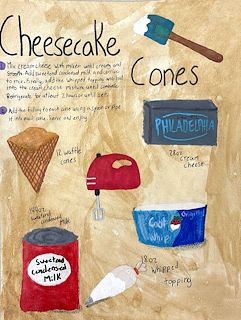 Cheesecake
Cones
1 Mix cream cheese with mixer until creamy and
smooth. Add sweetened condensed milk and continue
to mix. Finally, add the whipped topping and fold
into the cream cheese mixture until combined.
Refrigerate for at least 2 hours or until set.
2 Add the filling to each cone using a spoon or pipe
it into each cone. Serve and enjoy.
PHILADELPHIA
12 waffle
cones
28oz
cream
cheese
14oz
sweetened
condensed
milk
Cool
Whip
Original
Sweetened
Condensed
Milk
18oz
whipped
topping